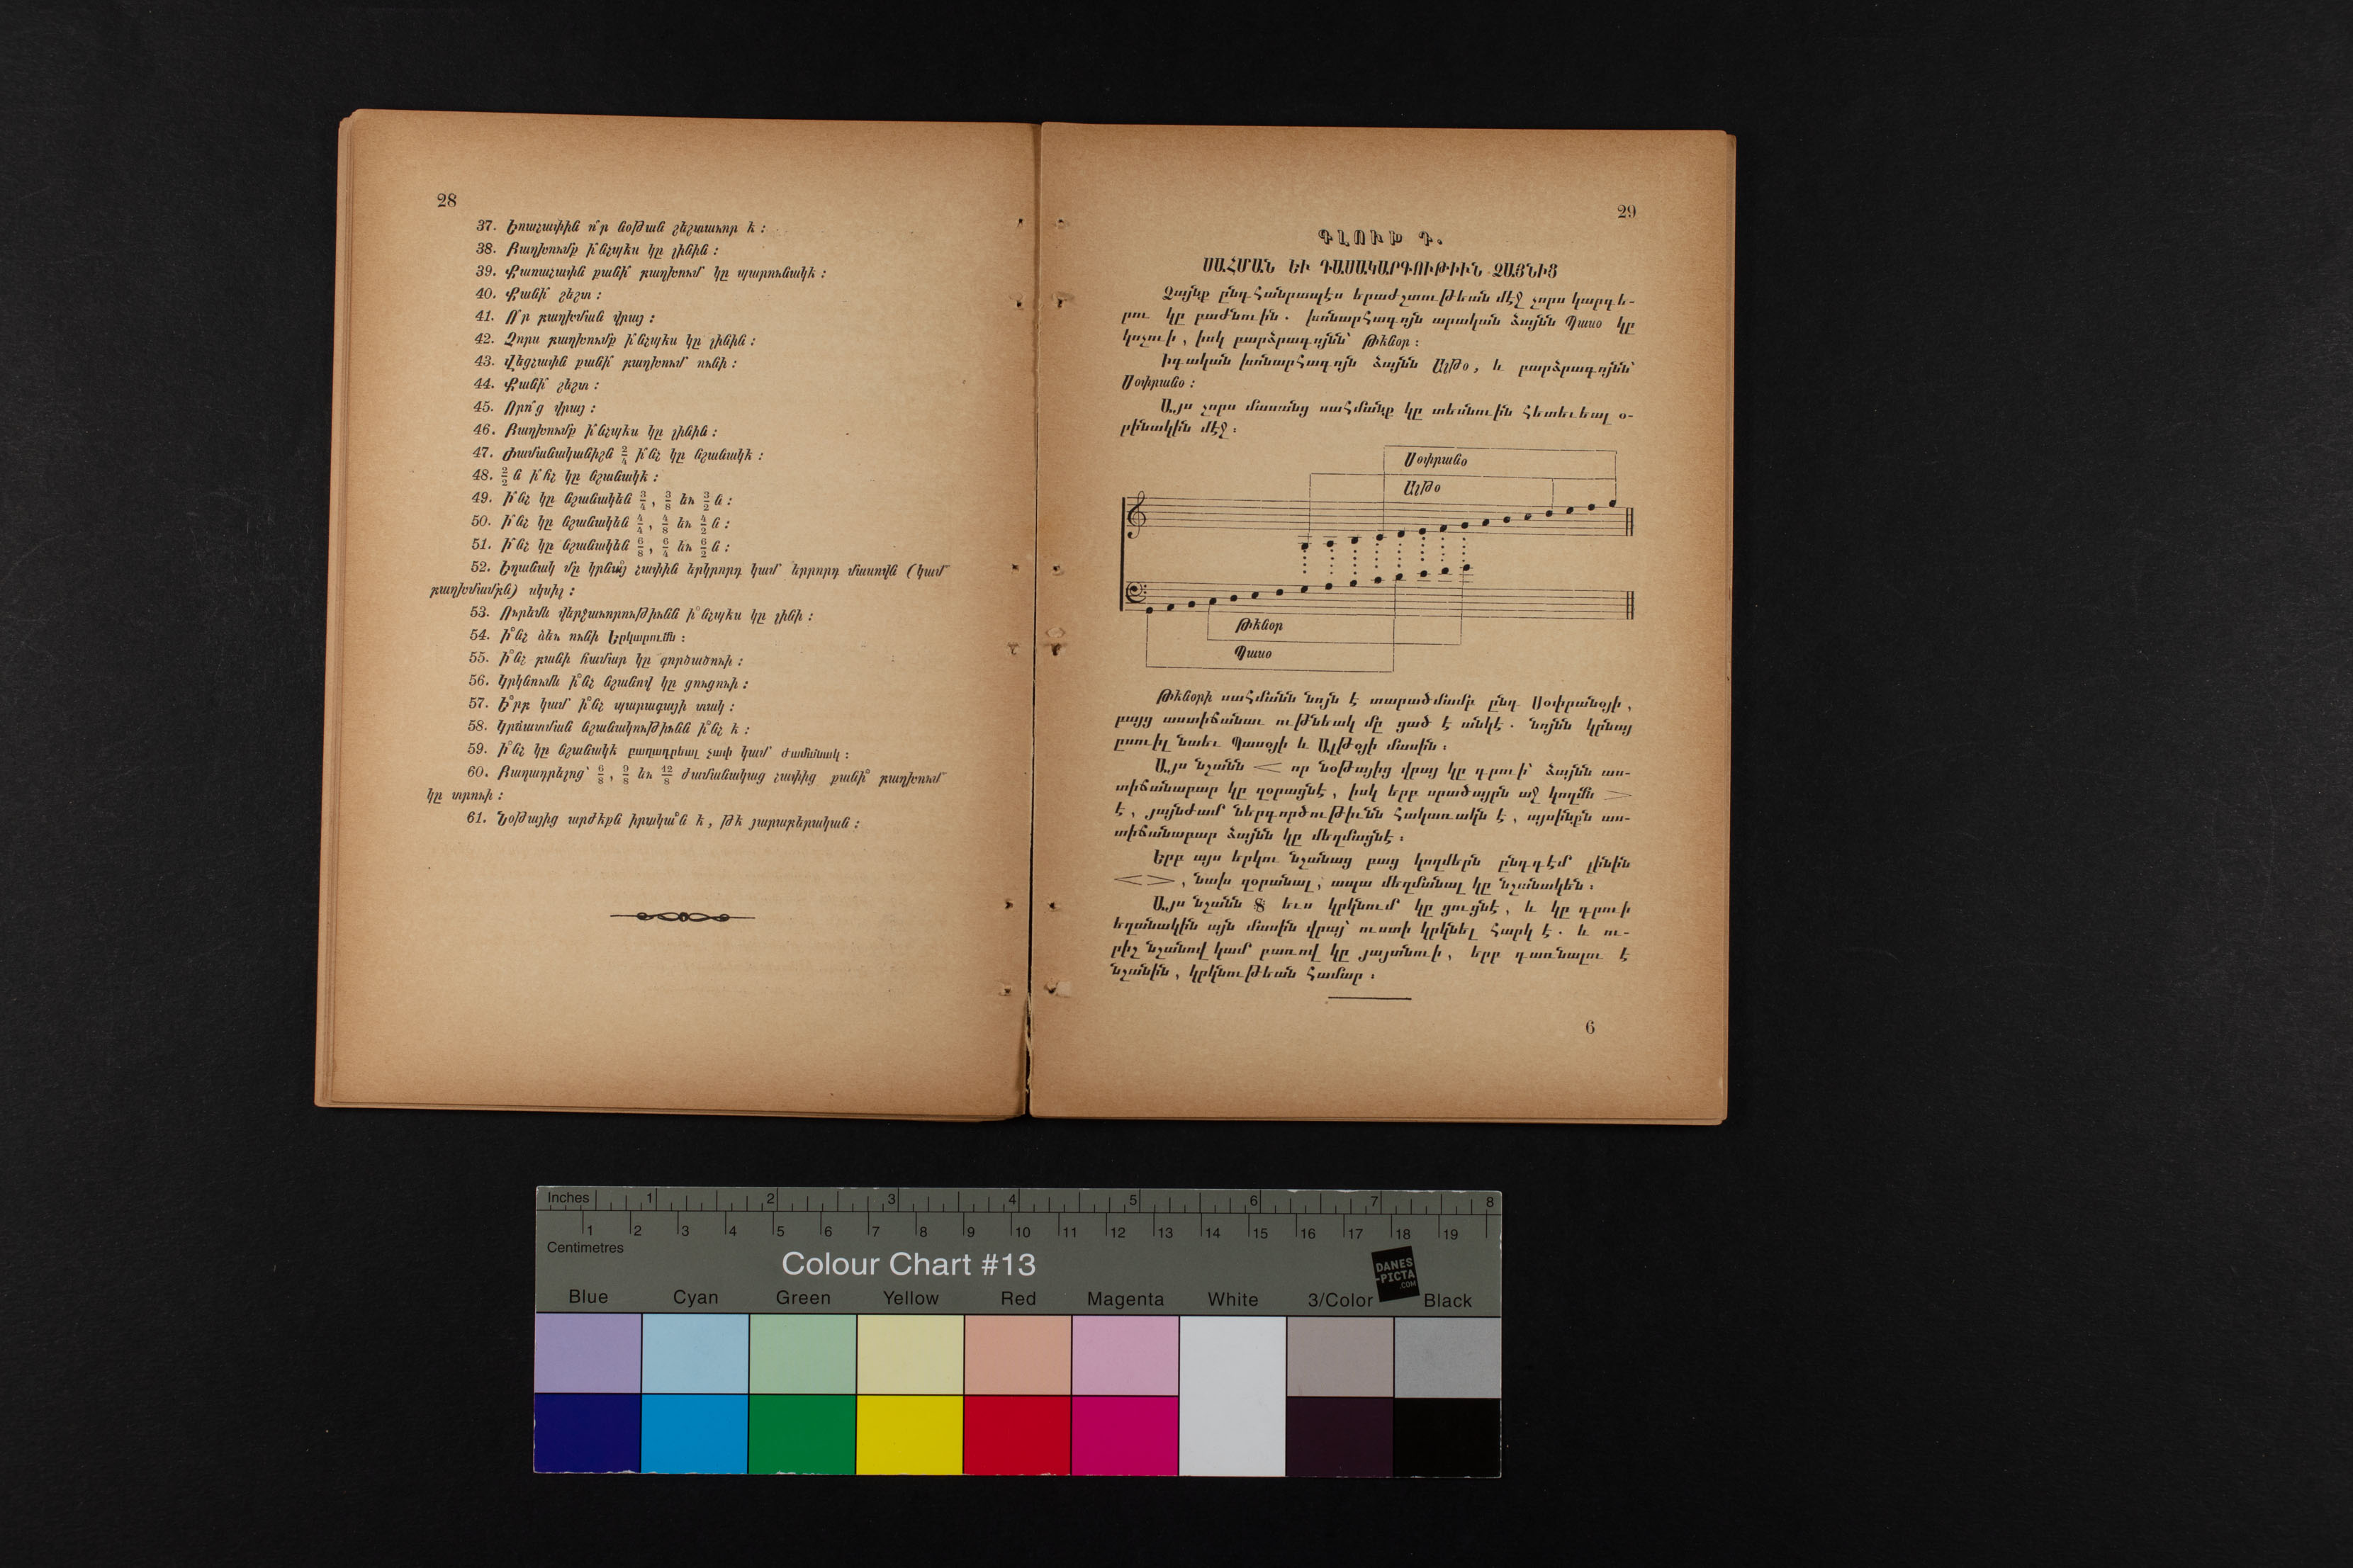 28
37. Եռաչափին ո՞ր նօթան շեշտաւոր է :
38. Բաղխումք ի՞նչպէս կը լինին :
39. Քառաչափն քանի՞ բաղխում կը պարունակէ :
40. Քանի՞ շեշտ :
41. Ո՞ր բաղխման վրայ :
42. Չորս բաղխումք ի՞նչպէս կը լինին :
43. Վեցչափն քանի՞ բաղխում ունի :
44. Քանի՞ շեշտ :
45. Որո՞ց վրայ :
46. Բաղխումք ի՞նչպէս կը լինին :
47. Ժամանականիշն 2/4 ի՞նչ կը նշանակէ :
48. 2/2 ն ի՞նչ կը նշանակէ :
49. Ի՞նչ կը նշանակեն 3/4, 3/8 եւ 3/2 ն :
50. Ի՞նչ կը նշանակեն 4/4, 4/8 եւ 4/2 ն :
51. Ի՞նչ կը նշանակեն 6/8, 6/4 եւ 6/2 ն :
52. Եղանակ մը կրնա՞յ չափին երկրորդ կամ երրորդ մասովն (կամ
բաղխմամբն) սկսիլ :
53. Ուրեմն վերջաւորութիւնն ի՞նչպէս կը լինի :
54. Ի՞նչ ձեւ ունի Երկարումն :
55. Ի՞նչ բանի համար կը գործածուի :
56. Կրկնումն ի՞նչ նշանով կը ցուցուի :
57. Ե՞րբ կամ ի՞նչ պարագայի տակ :
58. Կրճատման նշանակութիւնն ի՞նչ է :
59. Ի՞նչ կը նշանակէ բաղադրեալ չափ կամ ժամանակ :
60. Բաղադրելոց՝ 6/8, 9/8 եւ 12/8 ժամանակաց չափից քանի՞ բաղխում
կը տրուի :
61. Նօթայից արժէքն իրակա՞ն է, թէ յարաբերական :
29
ԳԼՈՒԽ Դ.
ՍԱՀՄԱՆ ԵՒ ԴԱՍԱԿԱՐԳՈՒԹԻՒՆ ՁԱՅՆԻՑ
Ձայնք ընդհանրապէս երաժշտութեան մէջ չորս կարգե-
րու կը բաժնուին. խոնարհագոյն արական ձայնն Պասօ կը
կոչուի, իսկ բարձրագոյնն՝ Թէնօր :
Իգական խոնարհագոյն ձայնն Ալթօ, և բարձրագոյնն՝
Սօփրանօ :
Այս չորս մասանց սահմանք կը տեսնուին հետեւեալ օ-
րինակին մէջ :
Սօփրանօ
Ալթօ
Թէնօր
Պասօ
Թէնօրի սահմանն նոյն է տարածմամբ ընդ Սօփրանօյի,
բայց աստիճանաւ ութնեակ մը ցած է անկէ. նոյնն կրնայ
ըսուիլ նաեւ Պասօյի և Ալթօյի մասին :
Այս նշանն < որ նօթայից վրայ կը դրուի՝ ձայնն աս-
տիճանաբար կը զօրացնէ, իսկ երբ սրածայրն աջ կողմն >
է, յայնժամ ներգործութիւնն հակառակն է, այսինքն աս-
տիճանաբար ձայնն կը մեղմացնէ :
Երբ այս երկու նշանաց բաց կողմերն ընդդէմ լինին
< >, նախ զօրանալ, ապա մեղմանալ կը նշանակեն :
Այս նշանն 𝄋 եւս կրկնում կը ցուցնէ, և կը դրուի
եղանակին այն մասին վրայ՝ ուստի կրկնել հարկ է. և ու-
րիշ նշանով կամ բառով կը յայտնուի, երբ դառնալու է
նշանին, կրկնութեան համար :
6
Inches 1 2 3 4 5 6 7 8
1 2 3 4 5 6 7 8 9 10 11 12 13 14 15 16 17 18 19
Centimetres
Colour Chart #13
DANES
-PICTA
.COM
Blue Cyan Green Yellow Red Magenta White 3/Color Black